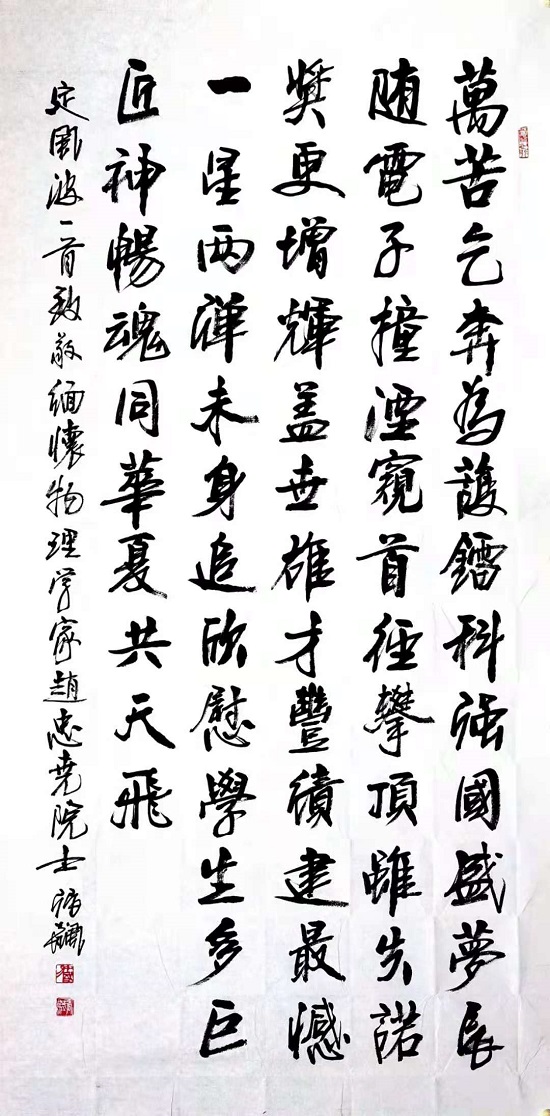 萬苦乞奔為護鐳科强國盛夢長
随電子撞湮窺首徑攀頂雖失諾
獎更增輝蓋世雄才豐績建最憾
一星两彈未身追欣慰學生多巨
匠神暢魂同華夏共天飛
定風波一首致敬緬懷物理学家趙忠尧院士